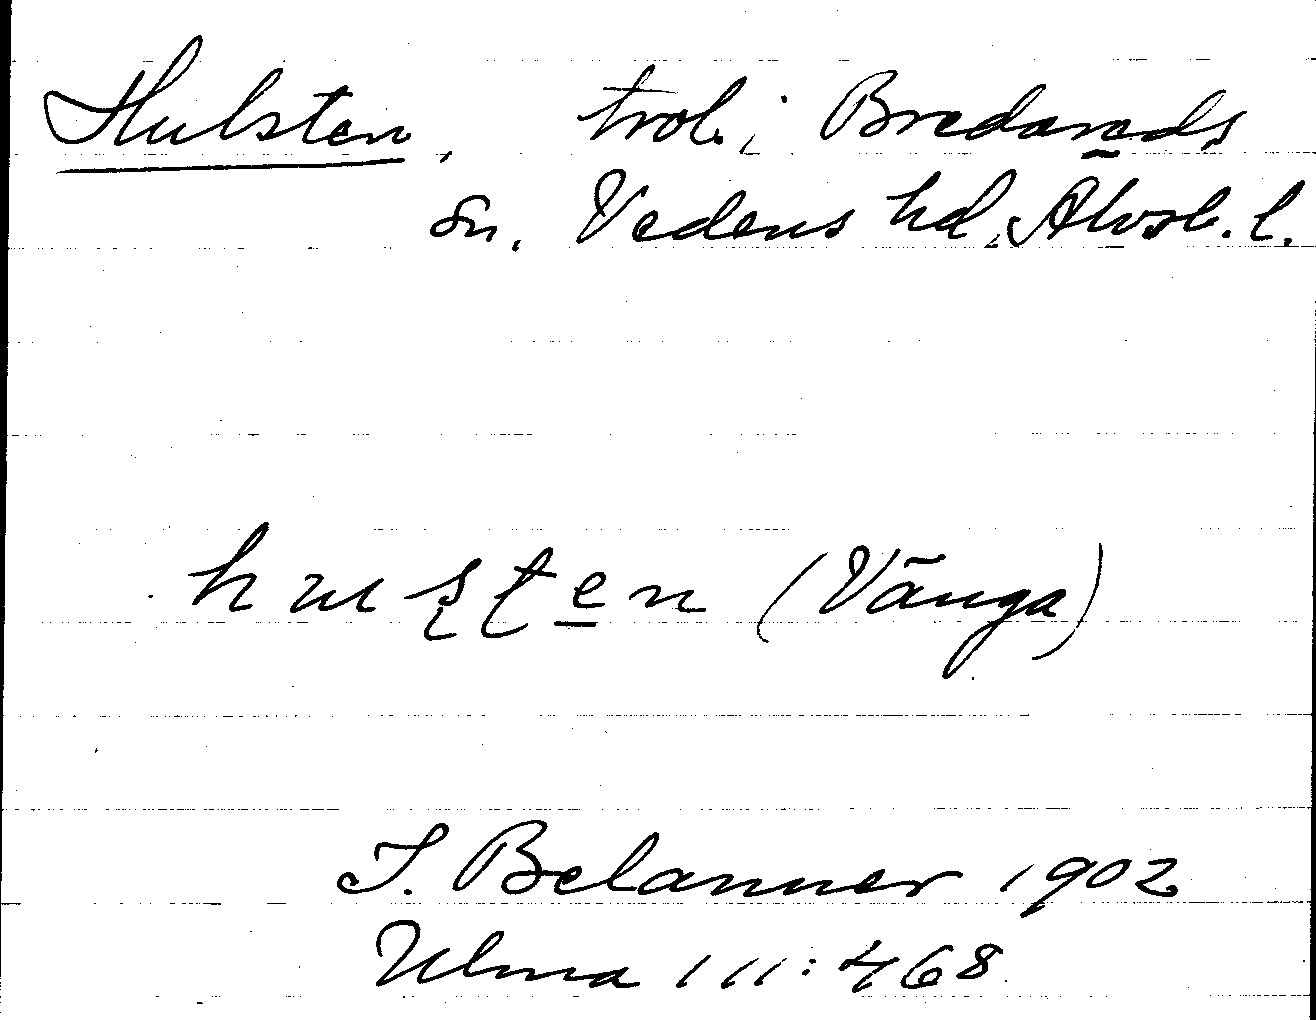 Hulsten, trol. i Bredareds
sn. Vedens hd, Älvsb. l.
husten (Vånga)
T. Belanner 1902
Ulma 111:468